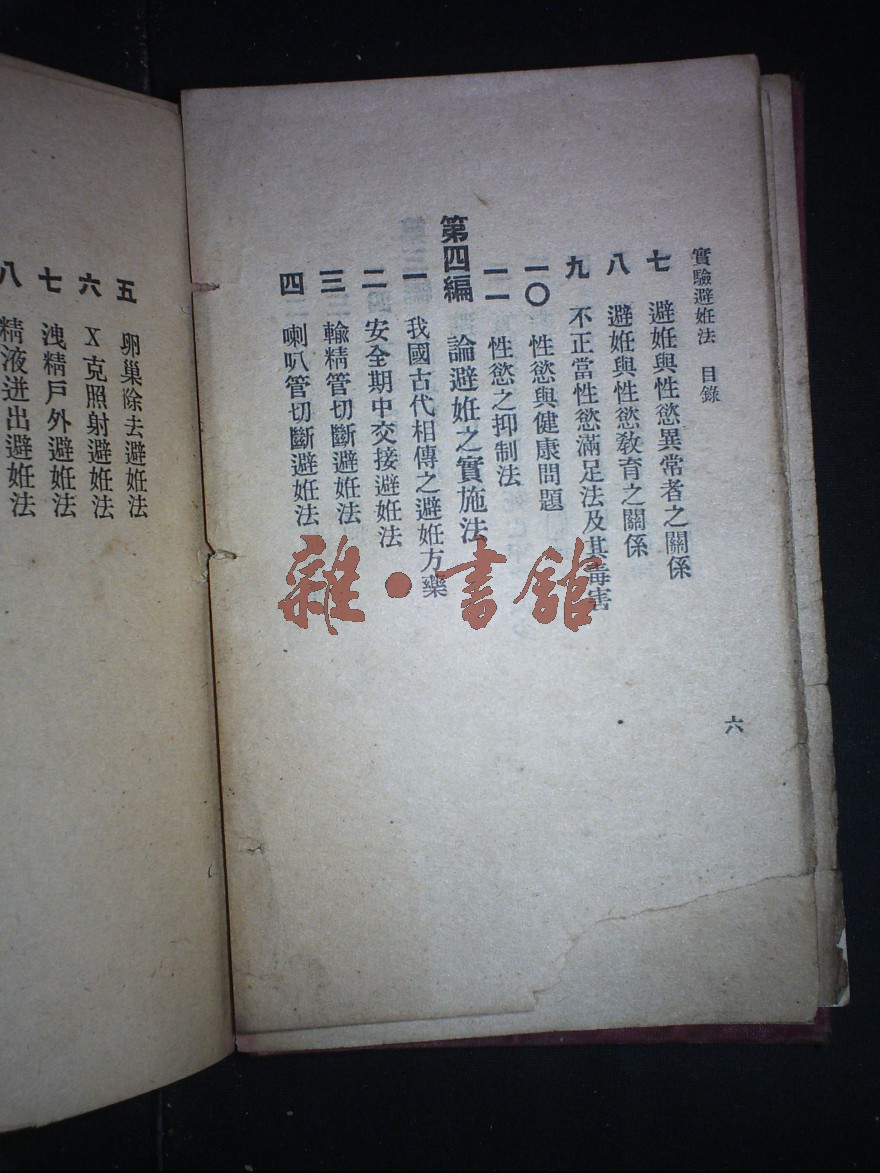 實驗避姙法　目錄
七　避姙與性慾異常者之關係
八　避姙與性慾敎育之關係
九　不正當性慾滿足法及其毒害
一〇　性慾與健康問題
一一　性慾之抑制法
第四編　論避姙之實施法
一　我國古代相傳之避姙方藥
二　安全期中交接避姙法
三　輸精管切斷避姙法
四　喇叭管切斷避姙法
六
五　卵巢除去避姙法
六　X克照射避姙法
七　洩精戶外避姙法
八　精液迸出避姙法
雜·書館